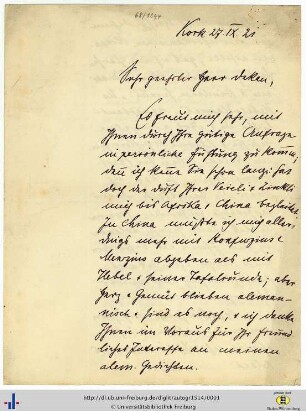 Kork 27 IX 21
Sehr geehrter Herr Dekan,
Es freut mich sehr, mit
Ihnen durch Ihre gütige Anfrage
in persönliche Fühlung zu kommen,
denn ich kenne Sie schon lange; hat
doch der Duft Ihrer Veieli
mich bis Afrika & China begleitet.
In China mußte ich mich aller-
dings mehr mit Konfuzius &
Menzius abgeben als mit
Hebel & seiner Tafelrunde; aber
Herz & Gemüt blieben aleman-
nisch & sind es noch, & ich danke
Ihnen im Voraus für Ihr freund-
liches Interesse an meinen
alem. Gedichten.
http://dl.ub.uni-freiburg.de/diglit/autogr1514/0001
© Universitätsbibliothek Freiburg